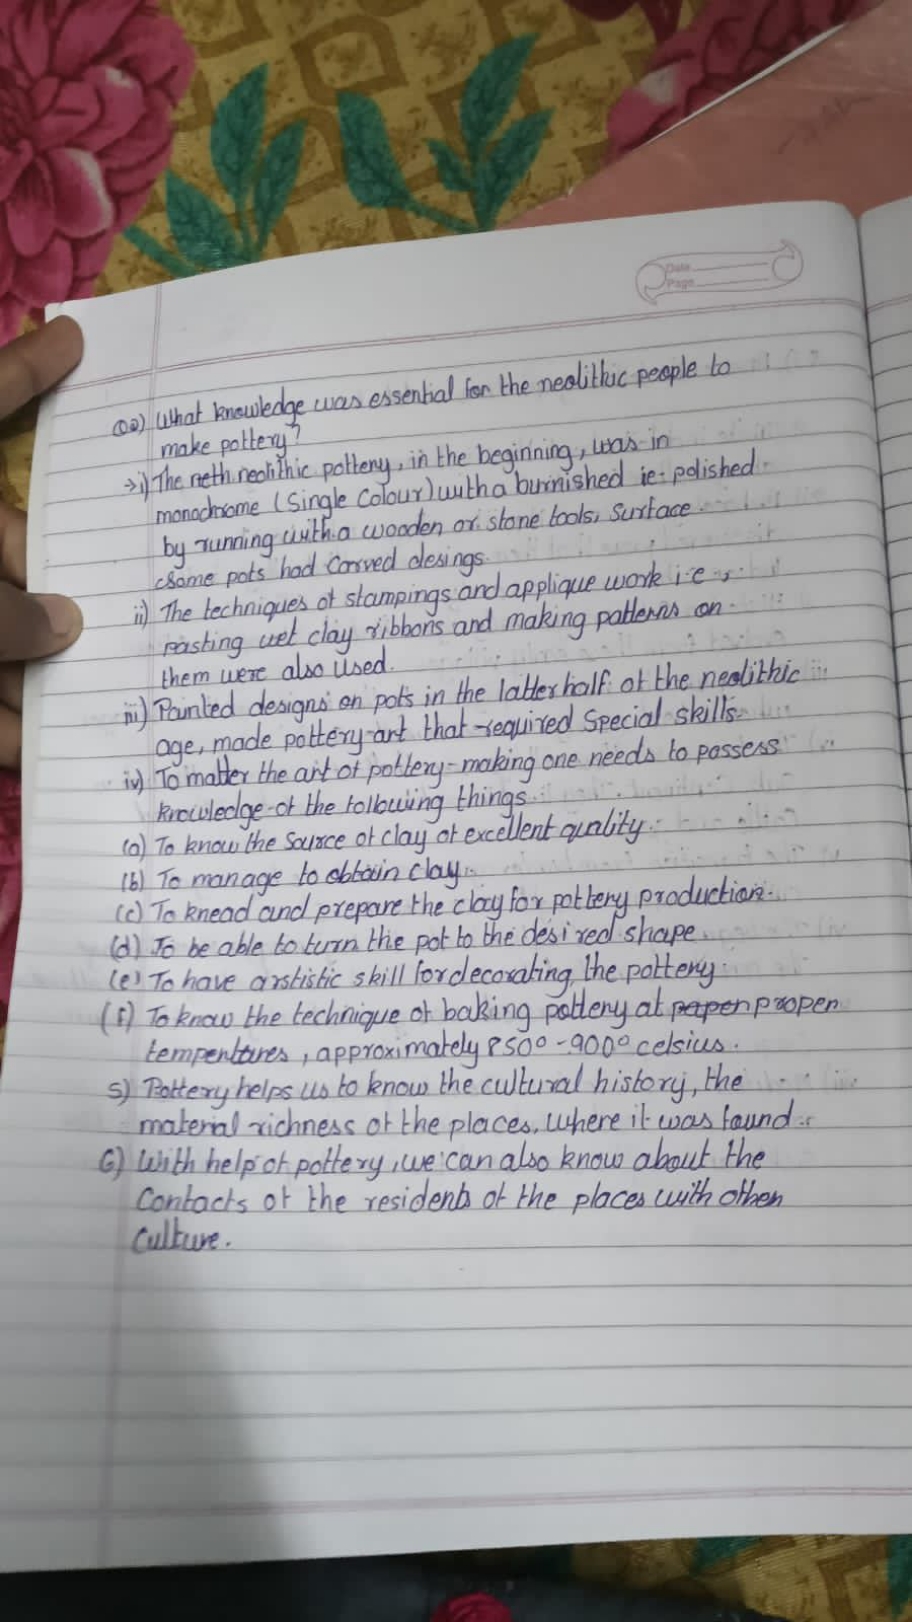 Date
Page
Q2) What knowledge was essential for the neolithic people to
make pottery?
→i) The neth neolithic potteny, in the beginning, was in
monochrome (Single Colour) with a burnished ie. polished
by running with a wooden or stone tools, Surface.
Some pots had Carved desings.
ii) The techniques of stampings and applique work i.e,
pasting wet clay ribbons and making patterns on
them were also used.
iii) Painted designs on pots in the latter half of the neolithic
age, made pottery-art that required Special skills
iv) To matter the art of pottery-making one needs to possess
knowledge of the following things.
(a) To know the Source of clay of excellent quality.
(b) To manage to obtain clay.
(c) To knead and prepare the clay for pottery production.
(d) To be able to turn the pot to the desired shape.
(e) To have arstistic skill for decorating the potteny.
(f) To know the technique of baking potteny at papen propen
tempentures, approximately 850° - 900° celsius.
5) Pottery helps us to know the cultural history, the
material richness of the places, where it was found.
6) With help of pottery, we can also know about the
Contacts of the residents of the places with othen
Culture.